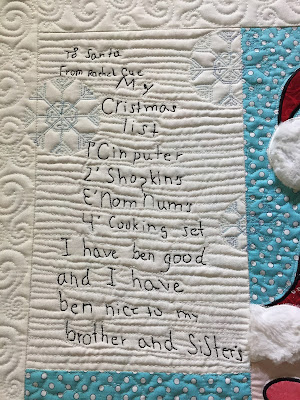 To Santa
From Rachel Sue
My
Cristmas
list
1' Cinputer
2' Shopkins
E' Nom Nums
4' Cooking set
I have ben good
and I have
ben nice to my
brother and Sisters